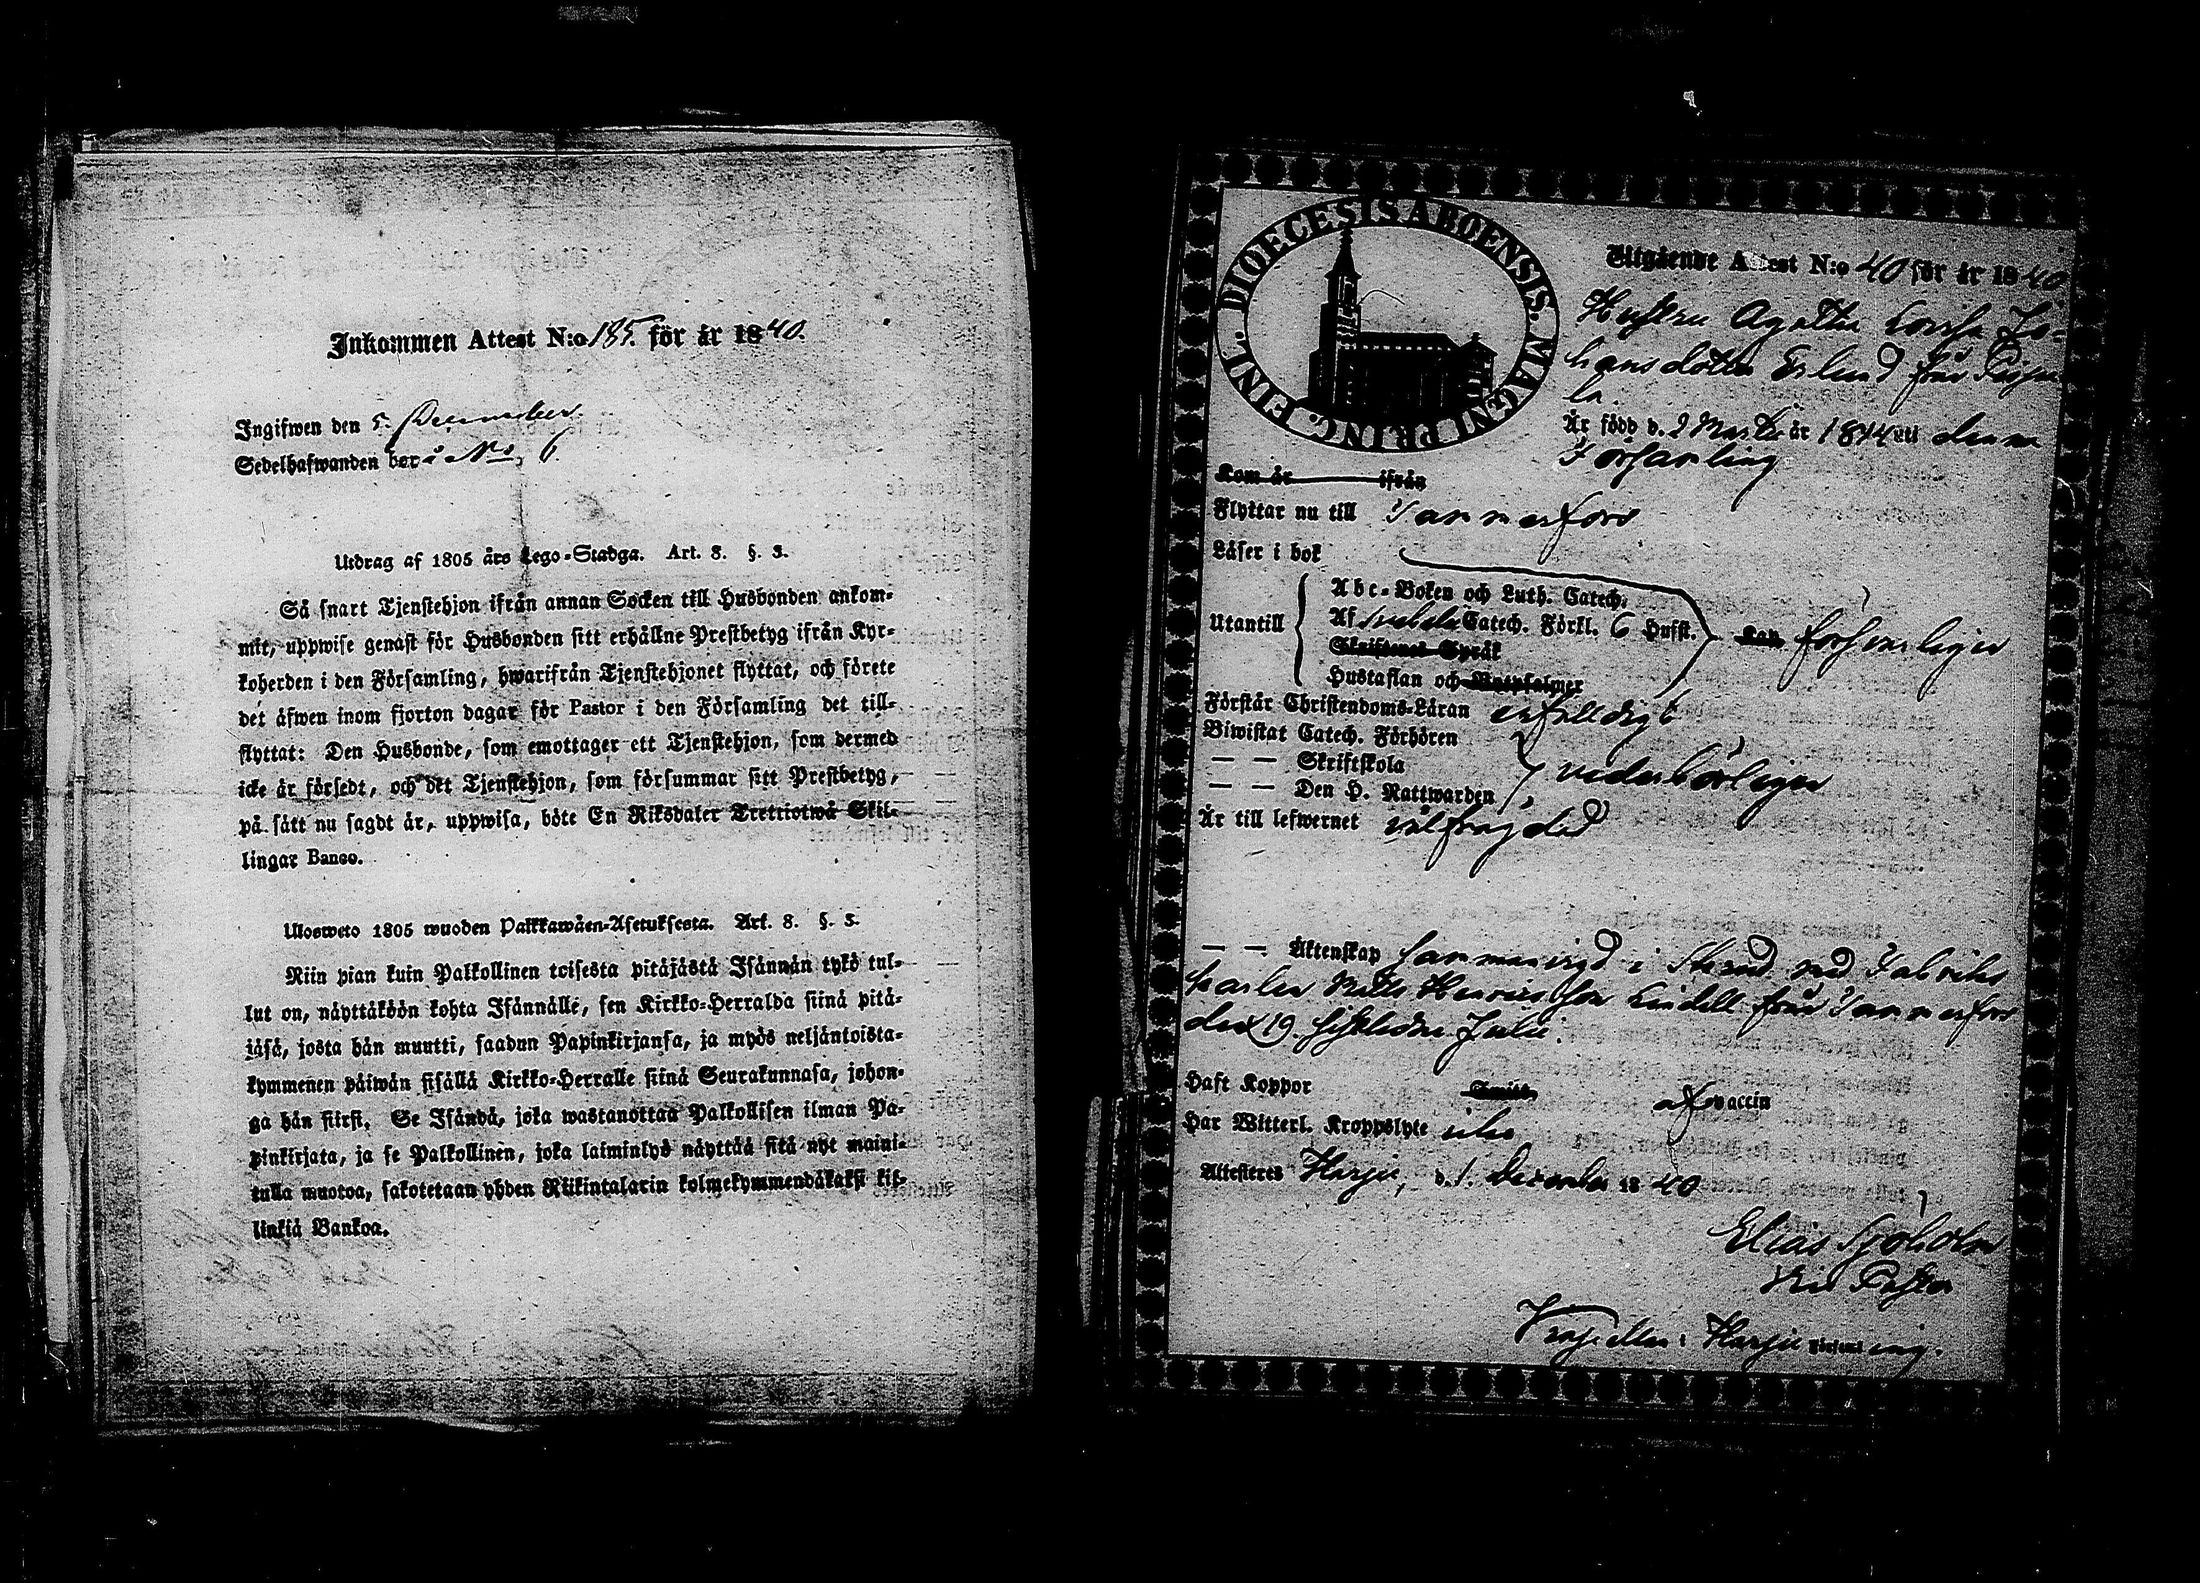 Inkommen Attest N:o 185. för år 1840.
Ingifwen den 5. December.
Sedelhafwanden bor i No. 6.
Utdrag af 1805 års Lego-Stadga. Art. 8. §. 3.
Så snart Tjenstehjon ifrån annan Socken till Husbonden ankom-
mit, uppwise genast för Husbonden sitt erhållne Prestbetyg ifrån Kyr-
koherden i den Församling, hwarifrån Tjenstehjonet flyttat, och förete
det äfwen inom fjorton dagar för Pastor i den Församling det till-
flyttat: Den Husbonde, som emottager ett Tjenstehjon, som dermed
icke är försedt, och det Tjenstehjon, som försummar sitt Prestbetyg,
på sätt nu sagdt är, uppwisa, böte En Riksdaler Trettiotwå Skil-
lingar Banco.
Ulosweto 1805 wuoden Palkkawäen-Asetuksesta. Art. 8. §. 3.
Niin pian kuin Palkollinen toisesta pitäjästä Isännän tykö tul-
lut on, näyttäköön kohta Isännälle, sen Kirkko-Herralda siinä pitä-
jäsä, josta hän muutti, saadun Papinkirjansa, ja myös neljäntoista-
kymmenen päiwän sisällä Kirkko-Herralle siinä Seurakunnasa, johon-
ga hän siirsi. Se Isändä, joka wastanottaa Palkollisen ilman Pa-
pinkirjata, ja se Palkollinen, joka laiminlyö näyttää sitä nyt maini-
tulla muotoa, sakotetaan yhden Riikintalarin kolmekymmendäkaksi kil-
linkiä Bankoa.
DIOECESIS ABOENSIS. MAGNI PRINC. FINL.
Utgående Attest N:o 40 för år 1840.
Hustru Agatha Lovisa Jo-
hansdotter Erlund från
la.
Är född d. 2 Martii år 1814 uti denna
Församling
Kom år ifrån
Flyttar nu till Tammerfors
Läser i bok
Abc-Boken och Luth. Catech.
Utantill Af Svebelii Catech. Förkl. 6 Hufst. Lap. försvarligen
Skriftenes Språk
Hustaflan och Botpsalmer
Förstår Christendoms-Läran enfalldigt
Biwistat Catech. Förhören
— — Skriftskola vederbörligen
— — Den H. Nattwarden
Är till lefwernet välfrägdad
— — Äktenskap sammanvigd i Stånd med Fabriks
karlen Matts Henricsson Lindell från Tammerfors
den 19. sistledne Julii.
Haft Koppor af vaccin
Har Witterl. Kroppslyte icke
Attesteres Harju, d. 1. December 1840
Elias Sjöholm
Vice Pastor
i Harju Församling.